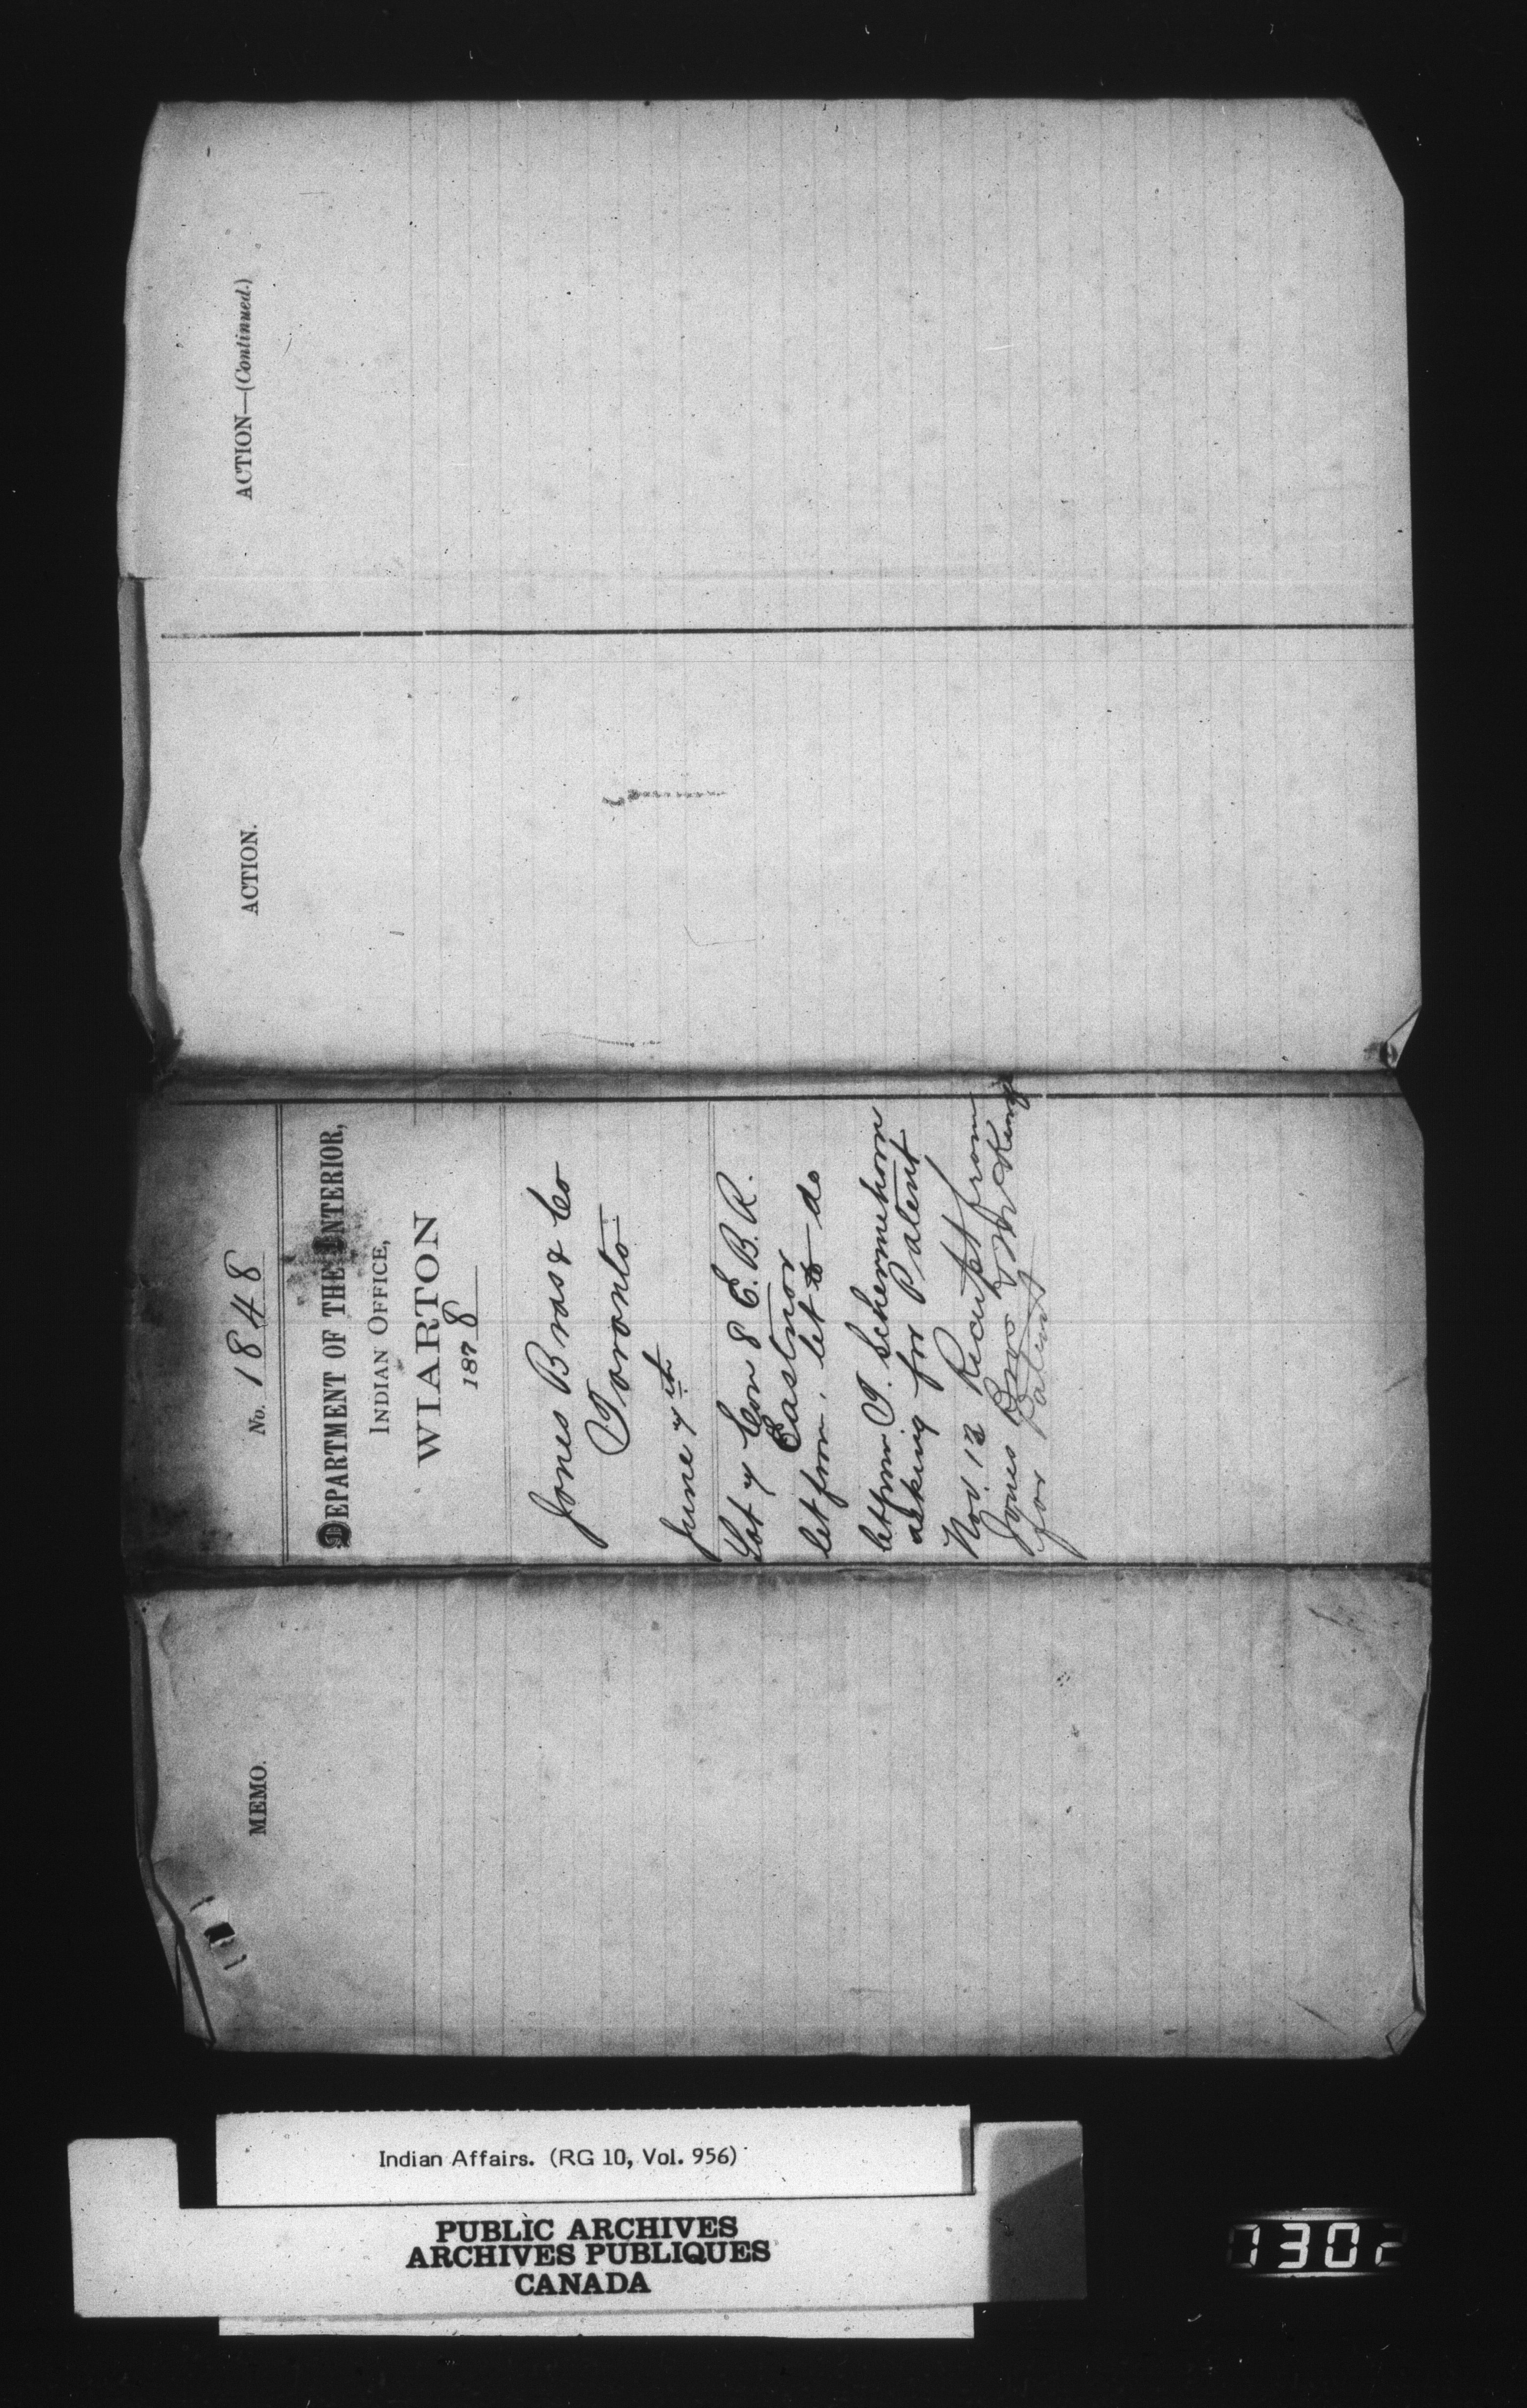 ACTION—(Continued.)
ACTION.
No. 1848
DEPARTMENT OF THE INTERIOR,
INDIAN OFFICE,
WIARTON
1878
Jones Bros & Co
Toronto
June 7th
Lot 7 Con 8 E. B. R.
Eastnor
let from, let to do
let from T. Schermehorn
asking for Patent
Nov. 13 Receipt from
Jones Bros
for Patent
MEMO.
Indian Affairs. (RG 10, Vol. 956)
PUBLIC ARCHIVES
ARCHIVES PUBLIQUES
CANADA